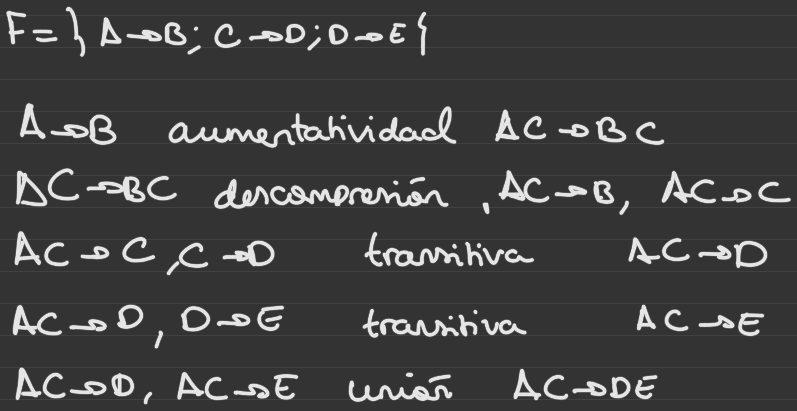 F = } A→B; C→D; D→E {
A→B aumentatividad AC→BC
AC→BC descompresión, AC→B, AC→C
AC→C, C→D transitiva AC→D
AC→D, D→E transitiva AC→E
AC→D, AC→E unión AC→DE